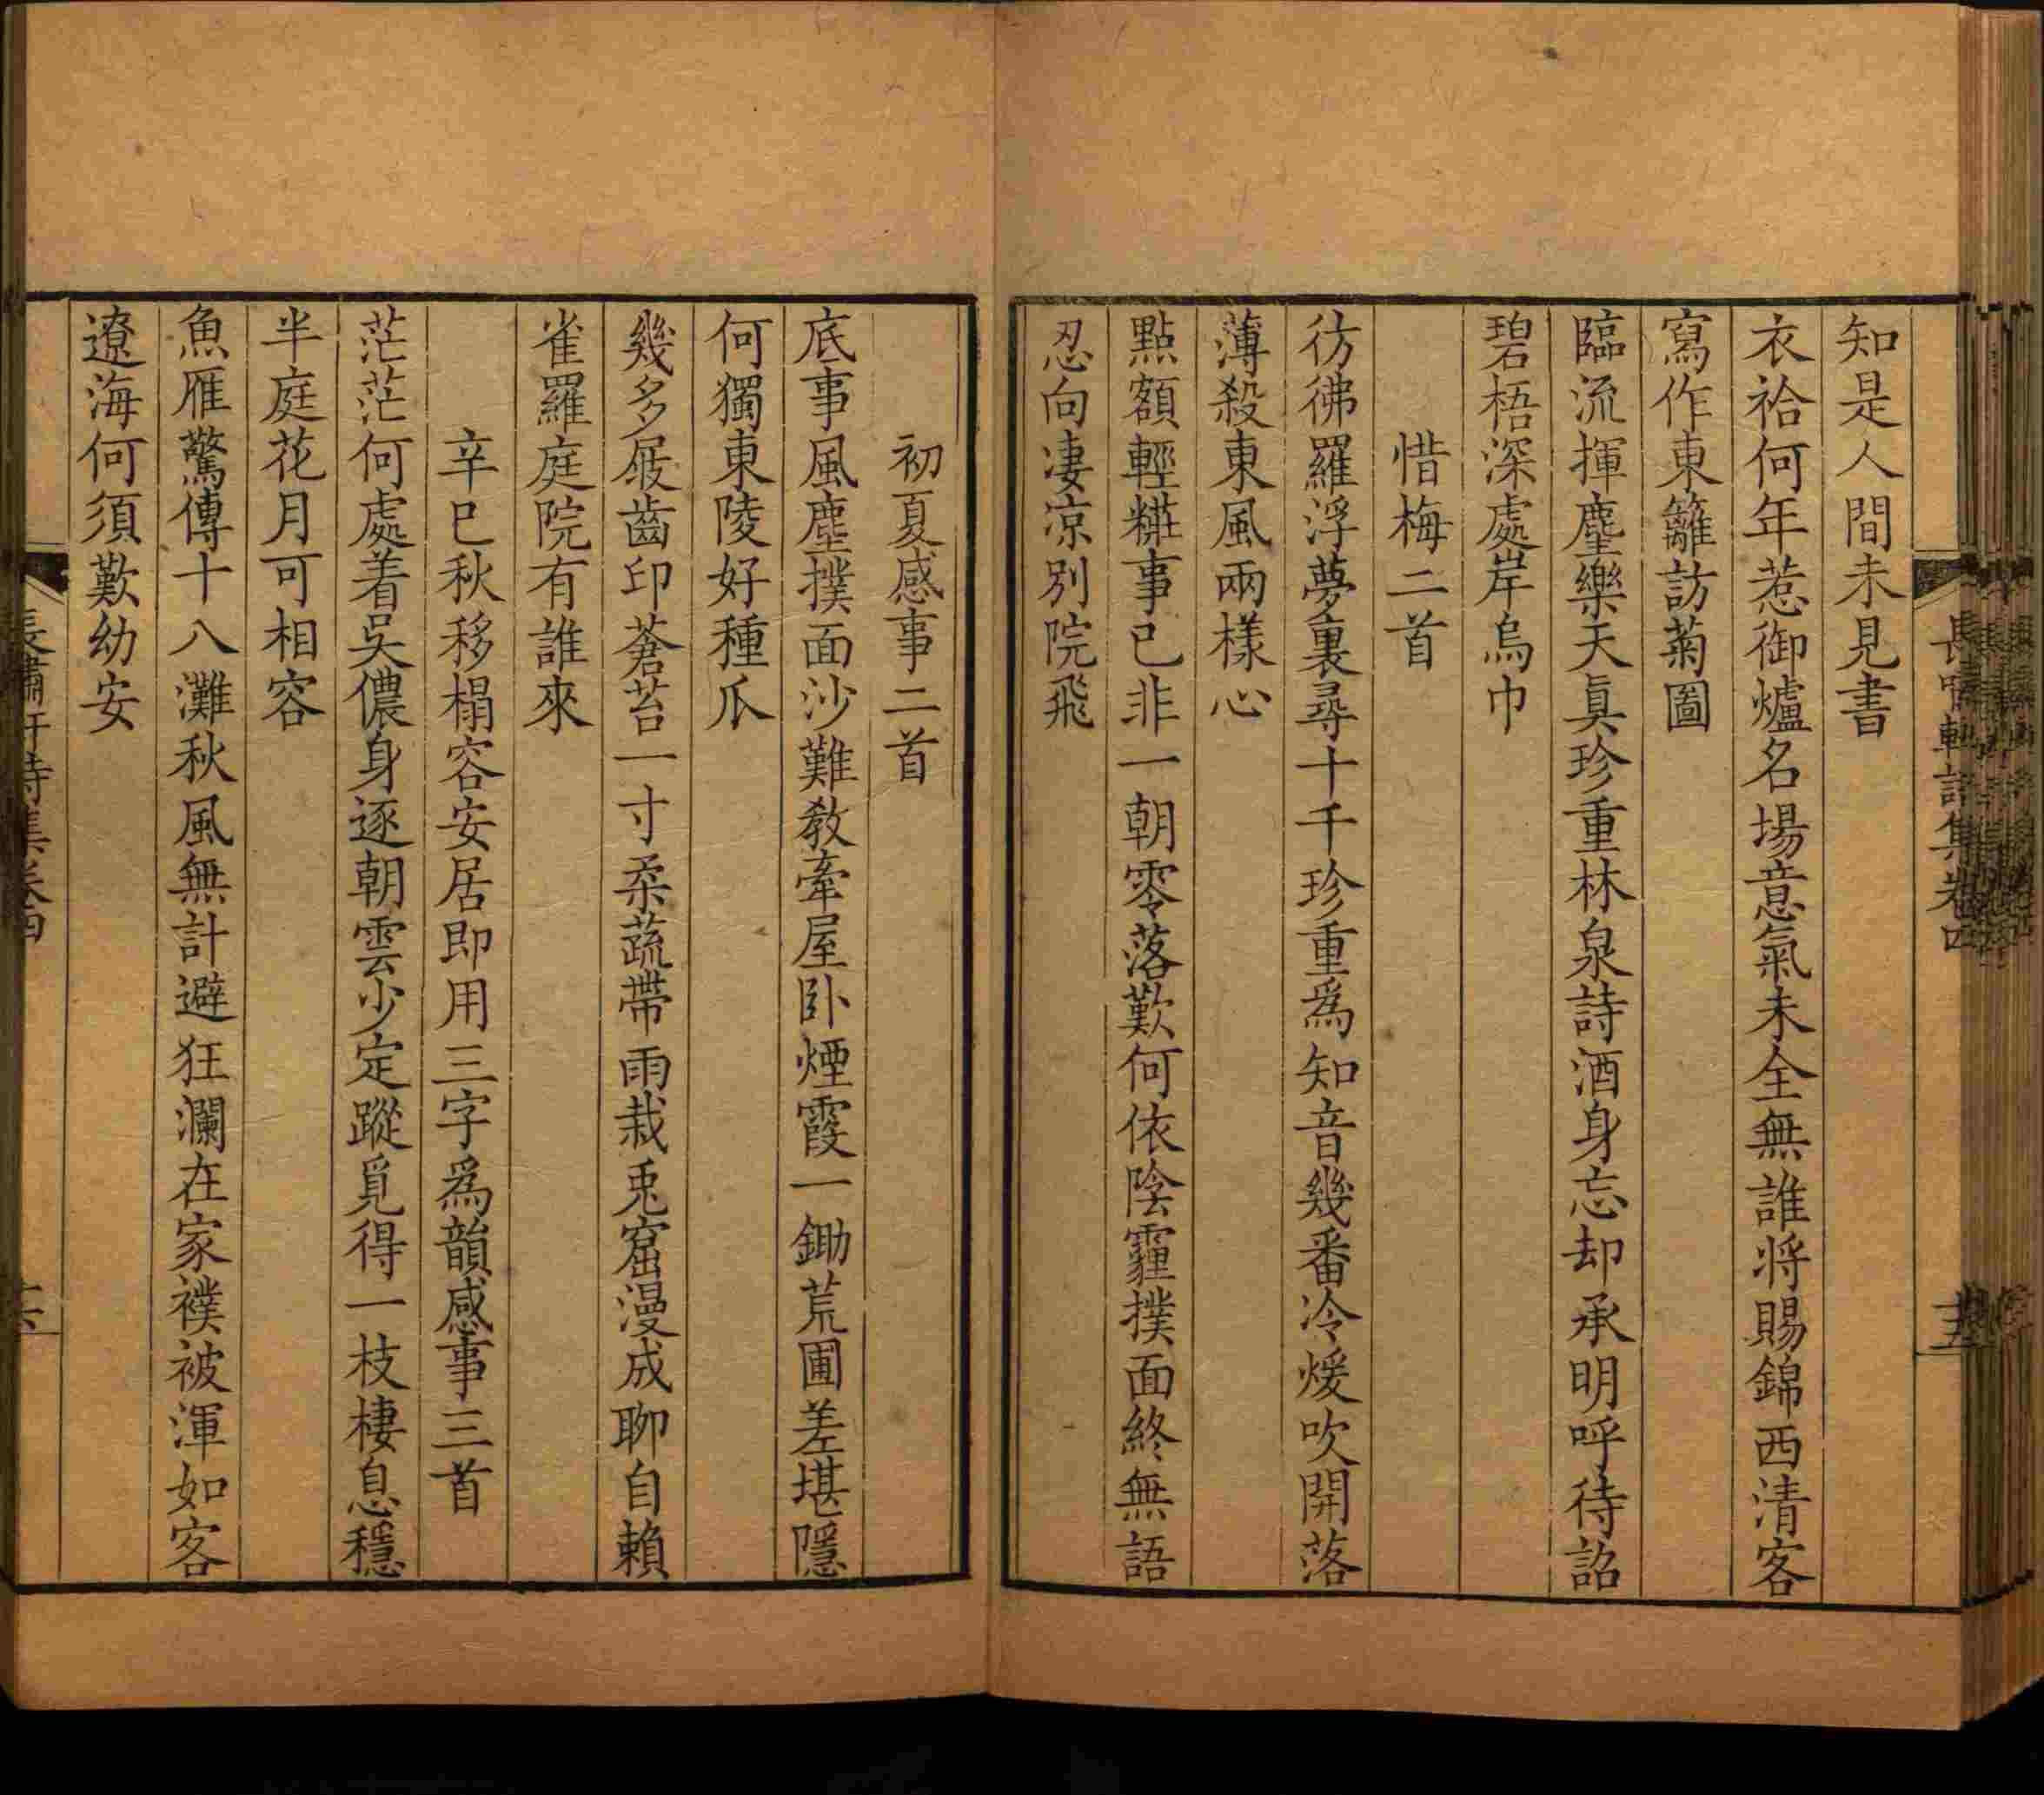 知是人間未見書
衣袷何年惹御爐名場意氣未全無誰將賜錦西清客
寫作東籬訪菊圖
臨流揮麈樂天眞珍重林泉詩酒身忘却承明呼待詔
碧梧深處岸烏巾
惜梅二首
彷彿羅浮夢裏尋十千珍重爲知音幾番冷煖吹開落
薄殺東風兩樣心
點額輕糚事已非一朝零落歎何依陰霾撲面終無語
忍向凄凉別院飛
初夏感事二首
底事風塵撲面沙難敎牽屋卧煙霞一鋤荒圃差堪隱
何獨東陵好種瓜
幾多屐齒印蒼苔一寸柔蔬帶雨栽兎窟漫成聊自賴
雀羅庭院有誰來
辛巳秋移榻容安居即用三字爲韻感事三首
茫茫何處着吳儂身逐朝雲少定蹤覓得一枝棲息穩
半庭花月可相容
魚雁驚傳十八灘秋風無計避狂瀾在家襆被渾如客
遼海何須歎幼安
長嘯軒詩集卷四